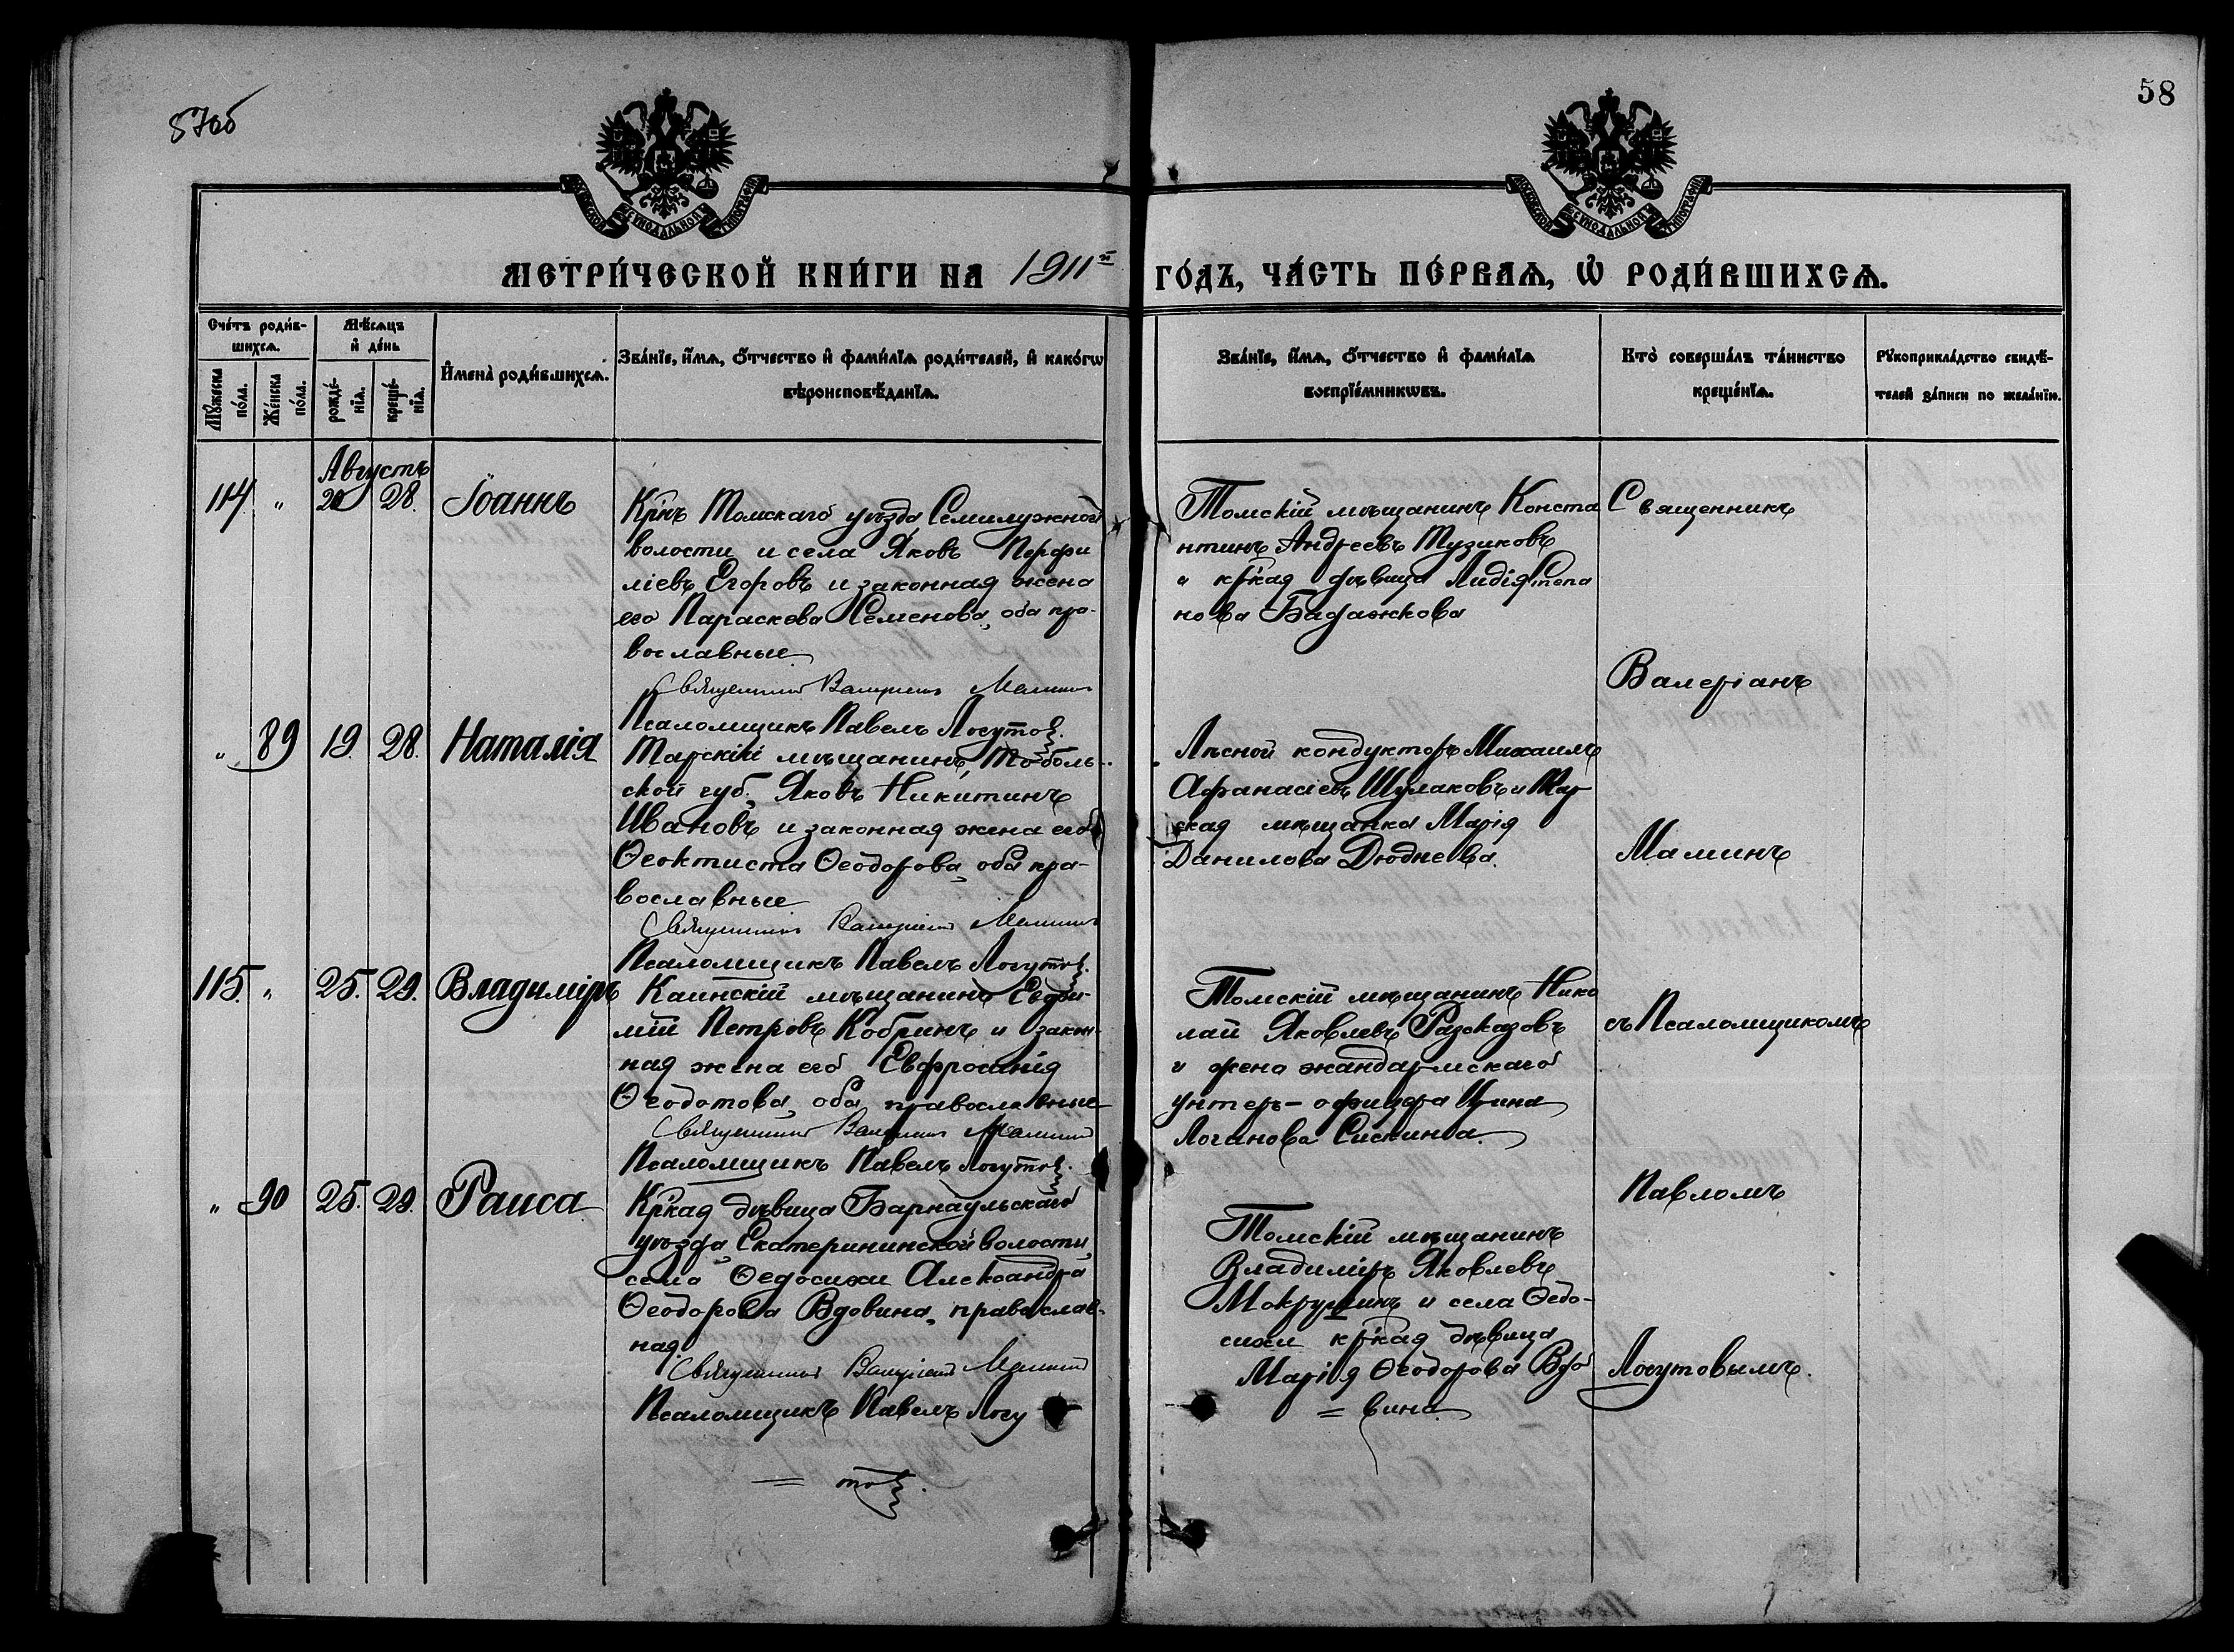 57об
58
МОСКОВСКОЙ СѴНОДАЛЬНОЙ ТИПОГРАФІИ
МОСКОВСКОЙ СѴНОДАЛЬНОЙ ТИПОГРАФІИ
МЕТРИ́ЧЕСКОЙ КНИ́ГИ НА 1911й ГО́ДЪ, ЧА́СТЬ ПЕ́РВАѦ, Ѽ РОДИ́ВШИХСѦ.
Сче́тъ роди́в-
шихсѧ.
Мѣ́сѧцъ
и҆ де́нь
Мꙋ́жеска
по́ла.
Же́нска
по́ла.
рожде́-
нїѧ.
креще́-
нїѧ.
И҆мена̀ роди́вшихсѧ.
Зва́нїе, и҆́мѧ, ѻ҆́тчество и҆ фами́лїѧ роди́телей, и҆ како́гѡ
вѣроисповѣ́данїѧ.
Зва́нїе, и҆́мѧ, ѻ҆́тчество и҆ фами́лїѧ
воспрїе́мникѡвъ.
Кто̀ соверша́лъ та́инство
креще́нїѧ.
Рꙋкоприкла́дство свидѣ́-
телей за́писи по жела́нїю.
Августъ
114 " 20 28. Іоаннъ
Кр҃нъ Томскаго уѣзда Семилужной
волости и села Яковъ Перфи
ліевъ Егоровъ и законная жена
его Параскева Семенова, оба пра-
вославные
Священникъ Валеріанъ Маминъ
Псаломщикъ Павелъ Логутов.
Томскій мѣщанинъ Конста
нтинъ Андреевъ Тузиковъ
и кр҃кая дѣвица Лидія Степа
нова Бадажкова
Священникъ
Валеріанъ
Маминъ
съ Псаломщикомъ
Павломъ
Логутовымъ.
" 89 19. 28. Наталія
Тарскій мѣщанинъ, Тоболь-
ской губ. Яковъ Никитинъ
Ивановъ и законная жена его
Ѳеоктиста Ѳеодорова, оба пра-
вославные
Священникъ Валеріанъ Маминъ
Псаломщикъ Павелъ Логутов.
Лѣсной кондукторъ Михаилъ
Афанасіевъ Шулаковъ и Тар
ская мѣщанка Марія
Данилова Дюднева.
115. " 25. 29. Владиміръ
Каинскій мѣщанинъ Евфи-
мій Петровъ Кобринъ и закон-
ная жена его Евфросинія
Ѳеодотова, оба православные
Священникъ Валеріанъ Маминъ
Псаломщикъ Павелъ Логутов.
Томскій мѣщанинъ Нико
лай Яковлевъ Разсказовъ
и жена жандармскаго
унтеръ-офицера Ирина
Логинова Сискина.
" 90 25. 29. Раиса
Кр҃кая дѣвица Барнаульскаго
уѣзда, Екатерининской волости,
села Ѳедосихи Александра
Ѳеодорова Вдовина, православ-
ная.
Священникъ Валеріанъ Маминъ
Псаломщикъ Павелъ Логу
= тов.
Томскій мѣщанинъ
Владиміръ Яковлевъ
Мокрушинъ и села Ѳедо-
сихи кр҃кая дѣвица
Марія Ѳеодорова Вдо
= вина.